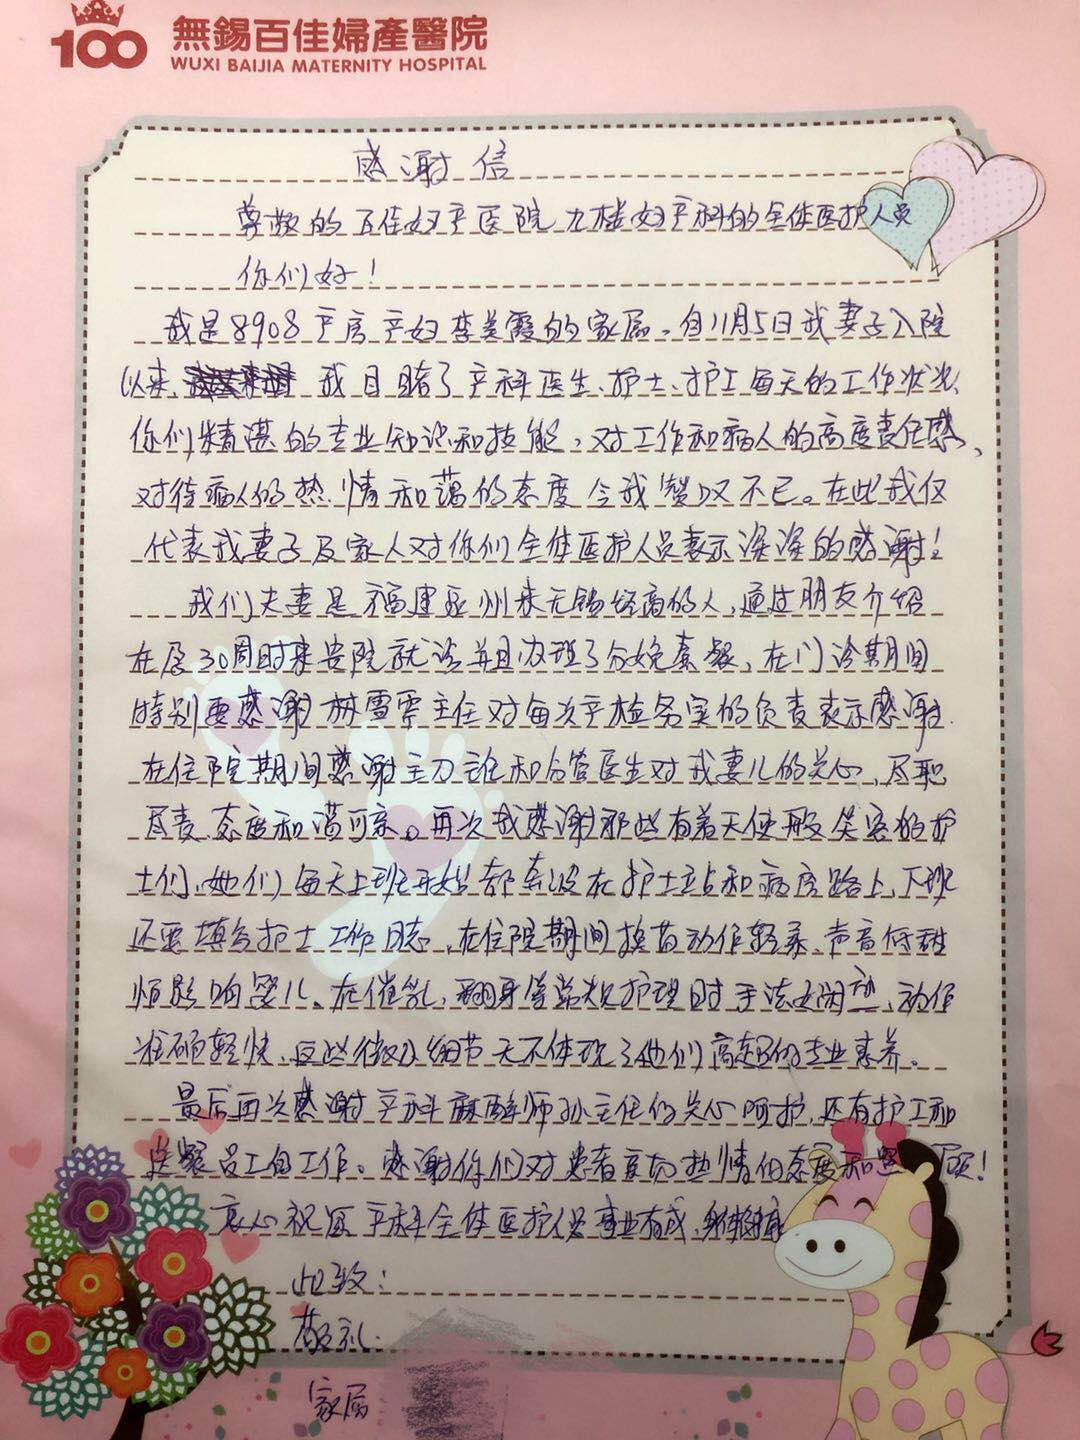 100 無錫百佳婦產醫院
WUXI BAIJIA MATERNITY HOSPITAL
感谢信
尊敬的百佳妇产医院九楼妇产科的全体医护人员
你们好！
我是8908产房产妇李美霞的家属。自11月5日我妻子入院
以来，我目睹了产科医生、护士、护工每天的工作状况，
你们精湛的专业知识和技能，对工作和病人的高度责任感、
对待病人的热情和蔼的态度令我赞叹不已。在此我仅
代表我妻子及家人对你们全体医护人员表示深深的感谢！
我们夫妻是福建 州来无锡经商的人，通过朋友介绍
在孕30周时来贵院就诊并且办理了分娩套餐，在门诊期间
特别要感谢林雪 主任对每次产检务实的负责表示感谢.
在住院期间感谢主刀 和分管医生对我妻儿的关心、尽职
尽责、态度和蔼可亲。再次我感谢那些有着天使般笑容的护
士们、她们每天上班开始都奔波在护士站和病房路上，下班
还要填写护士工作日志，在住院期间换药动作轻柔、声音低
影响婴儿、在催乳，翻身等常规护理时手法 、动作
准确轻快，这些微小细节无不体现了他们高超的专业素养。
最后再次感谢产科麻醉师孙主任的关心呵护，还有护工和
送餐员工的工作。感谢你们对患者 热情的态度和 顾！
衷心祝愿产科全体医护人员事业有成、身体健康
此致：
敬礼.
家属